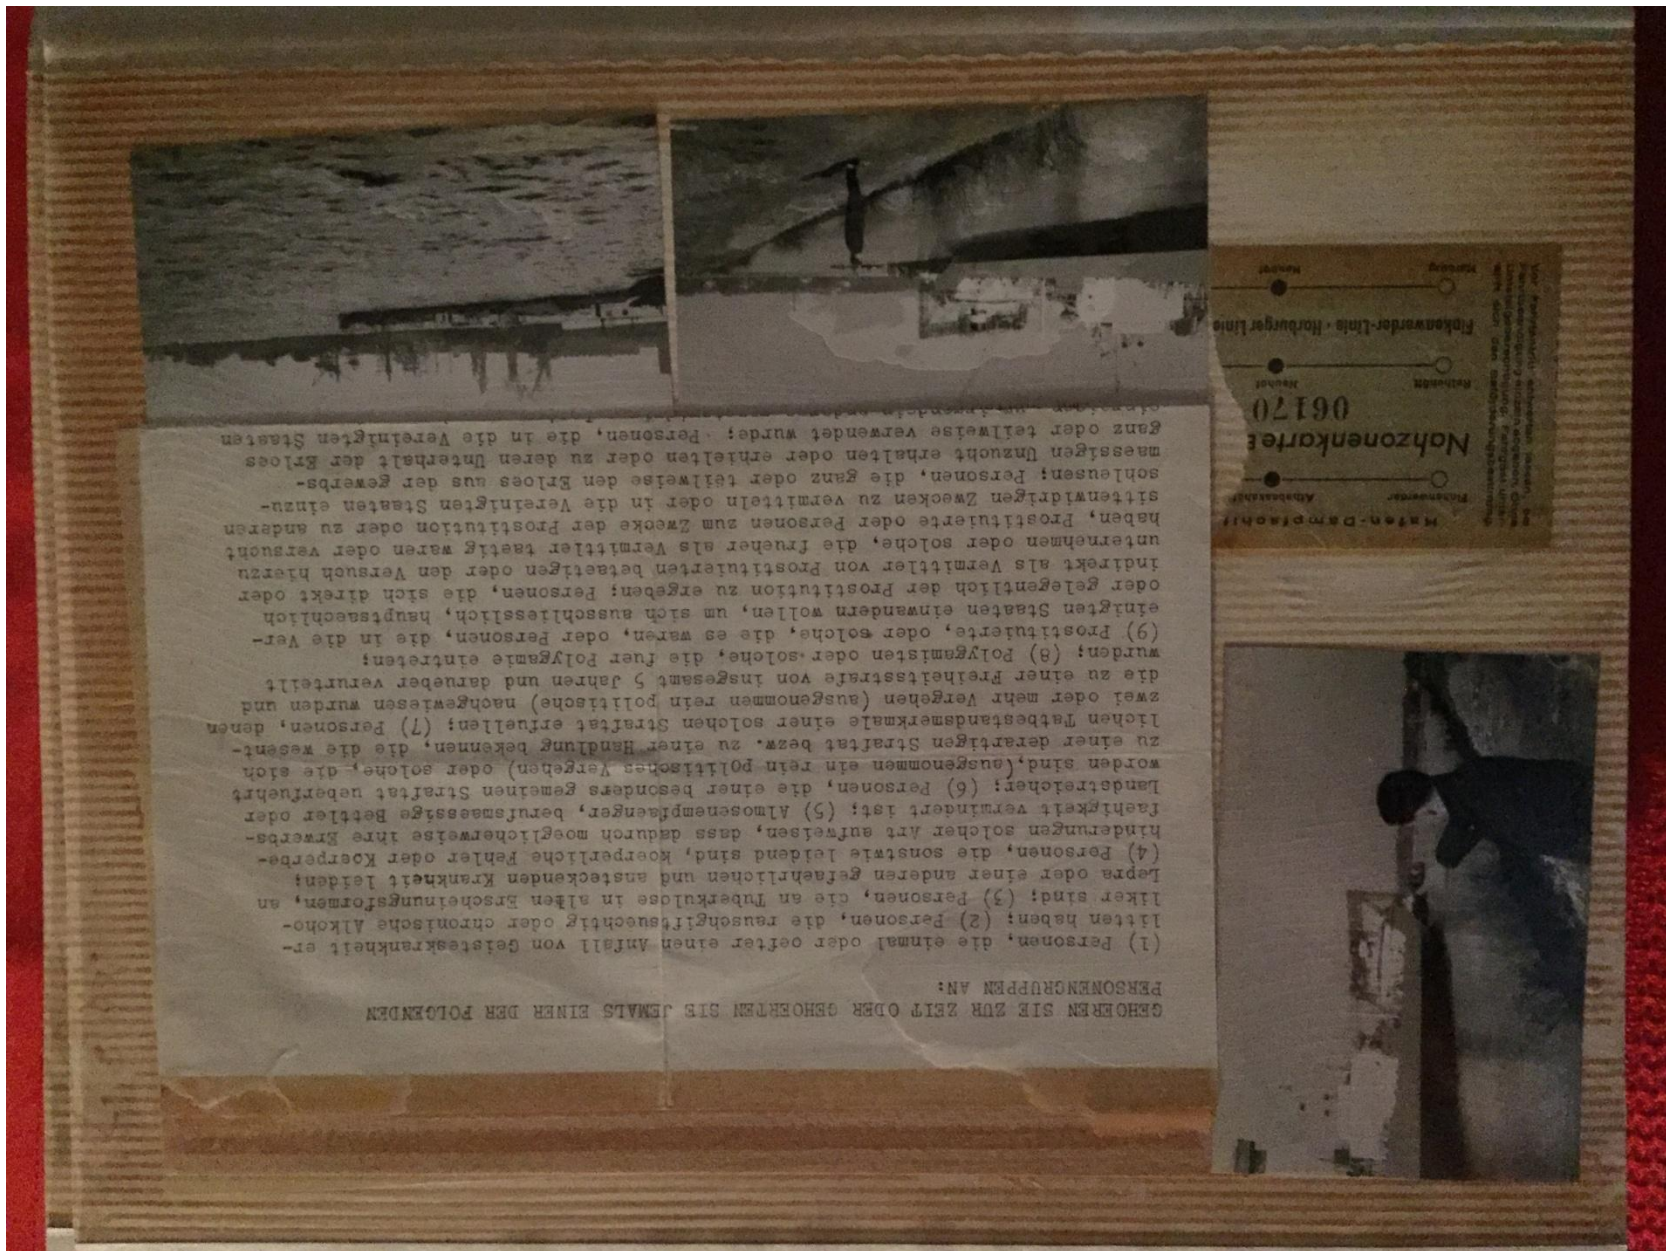 GEHOEREN SIE ZUR ZEIT ODER GEHOERTEN SIE JEMALS EINER DER FOLGENDEN
PERSONENGRUPPEN AN:
(1) Personen, die einmal oder oefter einen Anfall von Geisteskrankheit er-
litten haben; (2) Personen, die rauschgiftsuechtig oder chronische Alkoho-
liker sind; (3) Personen, die an Tuberkulose in allen Erscheinungsformen, an
Lepra oder einer anderen gefaehrlichen und ansteckenden Krankheit leiden;
(4) Personen, die sonstwie leidend sind, koerperliche Fehler oder Koerperbe-
hinderungen solcher Art aufweisen, dass dadurch moeglicherweise ihre Erwerbs-
faehigkeit vermindert ist; (5) Almosenempfaenger, berufsmaessige Bettler oder
Landstreicher; (6) Personen, die einer besonders gemeinen Straftat ueberfuehrt
worden sind,(ausgenommen ein rein politisches Vergehen) oder solche, die sich
zu einer derartigen Straftat bezw. zu einer Handlung bekennen, die die wesent-
lichen Tatbestandsmerkmale einer solchen Straftat erfuellen; (7) Personen, denen
zwei oder mehr Vergehen (ausgenommen rein politische) nachgewiesen wurden und
die zu einer Freiheitsstrafe von insgesamt 5 Jahren und darueber verurteilt
wurden; (8) Polygamisten oder solche, die fuer Polygamie eintreten;
(9) Prostituierte, oder solche, die es waren, oder Personen, die in die Ver-
einigten Staaten einwandern wollen, um sich ausschliesslich, hauptsaechlich
oder gelegentlich der Prostitution zu ergeben; Personen, die sich direkt oder
indirekt als Vermittler von Prostituierten betaetigen oder den Versuch hierzu
unternehmen oder solche, die frueher als Vermittler taetig waren oder versucht
haben, Prostituierte oder Personen zum Zwecke der Prostitution oder zu anderen
sittenwidrigen Zwecken zu vermitteln oder in die Vereinigten Staaten einzu-
schleusen; Personen, die ganz oder teilweise den Erloes aus der gewerbs-
maessigen Unzucht erhalten oder erhielten oder zu deren Unterhalt der Erloes
ganz oder teilweise verwendet wurde; Personen, die in die Vereinigten Staaten
Hafen-Dampfschif
Finkenwerder
Nahzonenkarte
06170
Neuhof
Finkenwerder-Linie · Harburger Linie
Harburg
Neuhof